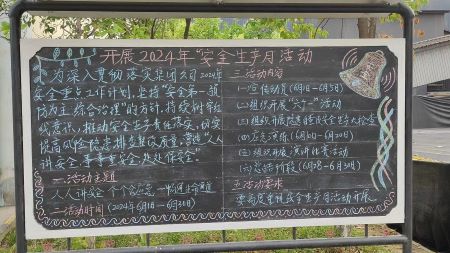 开展2024年"安全生产月"活动
为深入贯彻落实集团公司2024年
安全重点工作计划,坚持"安全第一,预
防为主,综合治理"的方针,持续树牢红
线意识,推动安全生产责任落实,切实
提高风险隐患排查整改质量,营造"人人
讲安全、事事重安全、处处保安全"
一、活动主题
人人讲安全 个个会应急 畅通生命通道
二、活动时间(2024年6月1日-6月30日)
三、活动内容
(一)宣传动员(6月1日-6月5日)
(二)组织开展"六个一"活动
(三)组织开展隐患排查及安全大检查
(四)应急演练(6月10日-6月20日)
(五)组织开展演讲比赛活动
(六)总结阶段(6月28日-6月30日)
五、活动要求